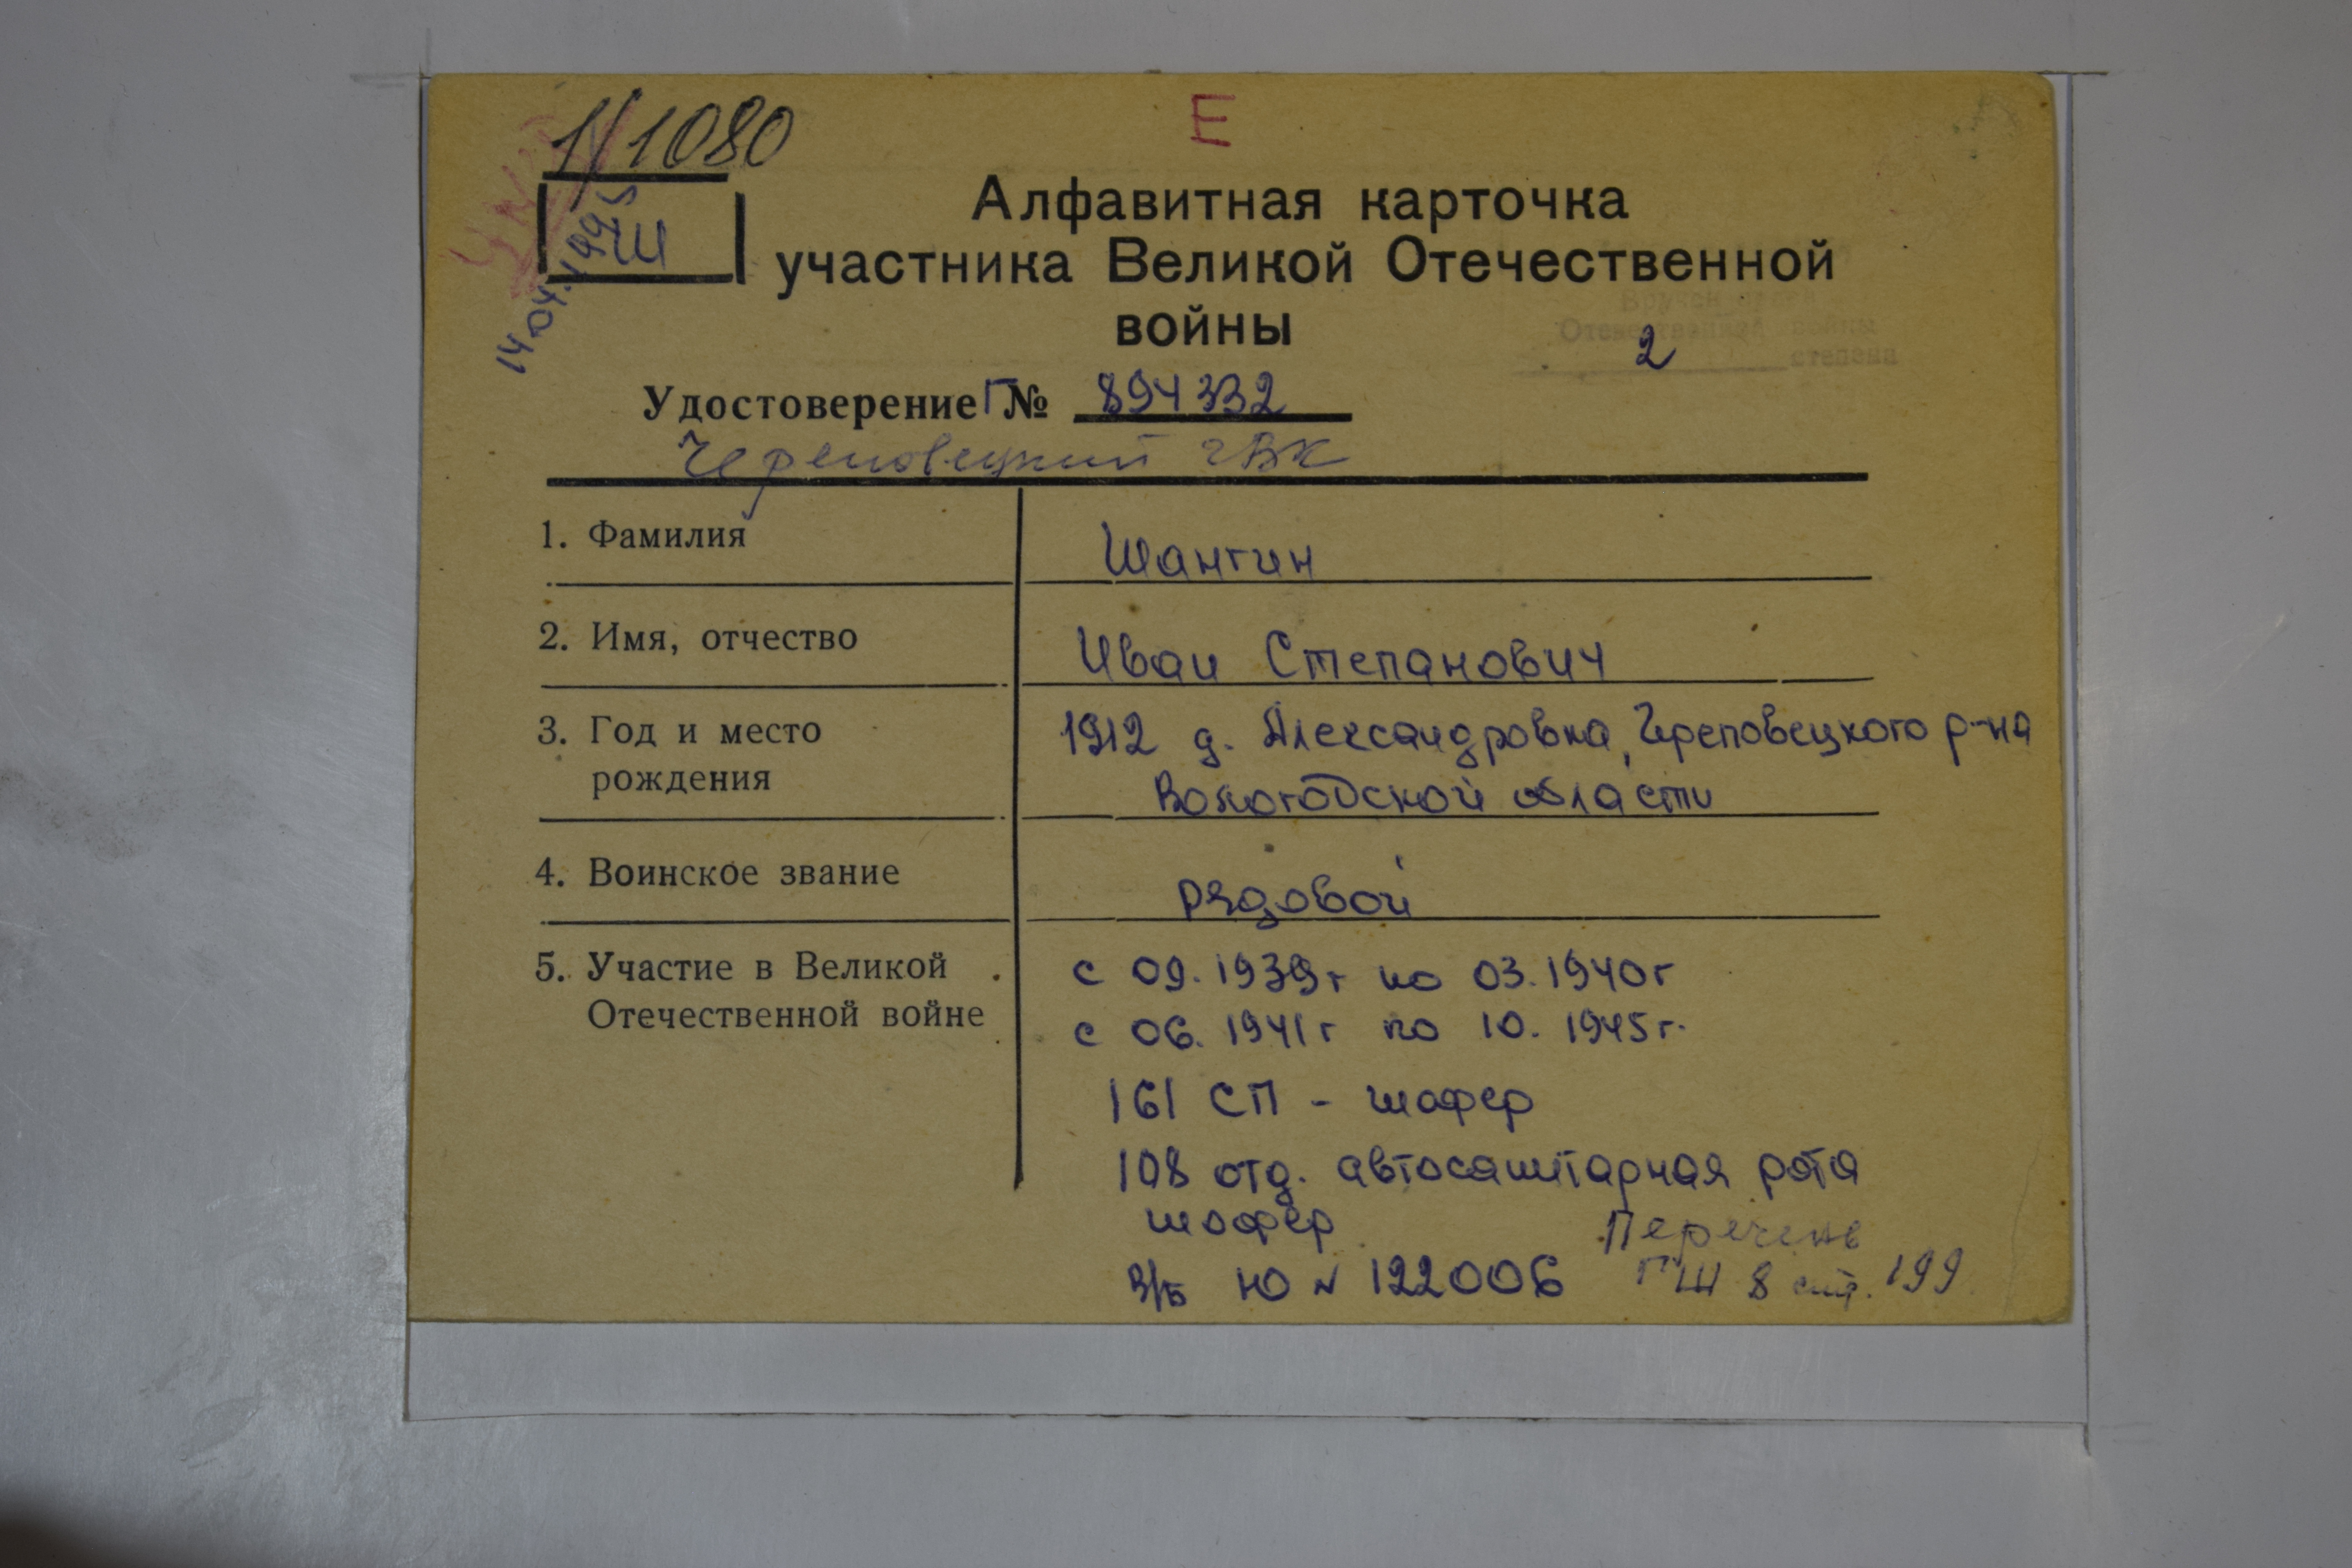 1/1080
Е
Ш
14.04.1995
Алфавитная карточка
участника Великой Отечественной
войны
Вручен орден
Отечественной войны
2 степени
Удостоверение Г № 894332
Череповецкий гВК
1. Фамилия
Шангин
2. Имя, отчество
Иван Степанович
3. Год и место
рождения
1912 д. Александровка, Череповецкого р-на
Вологодской области
4. Воинское звание
рядовой
5. Участие в Великой
Отечественной войне
с 09.1939г по 03.1940г
с 06.1941г по 10.1945г.
161 СП - шофер
108 отд. автосанитарная рота
шофер
В/б Ю № 122006
Перечень
ГШ 8 стр. 199